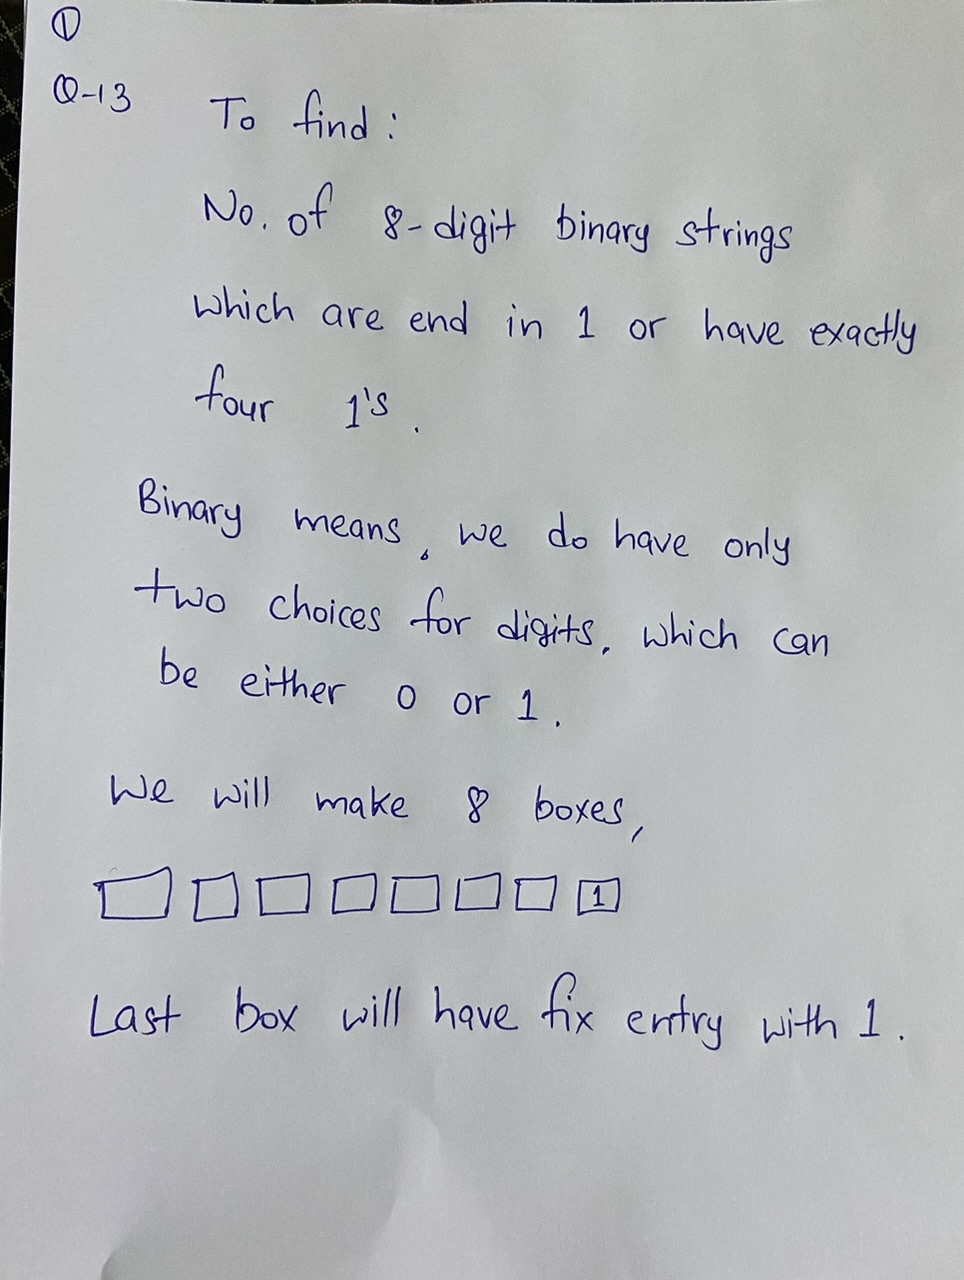 ①
Q-13 To find :
No. of 8-digit binary strings
which are end in 1 or have exactly
four 1's.
Binary means, we do have only
two choices for digits, which can
be either 0 or 1.
We will make 8 boxes,
1
Last box will have fix entry with 1.